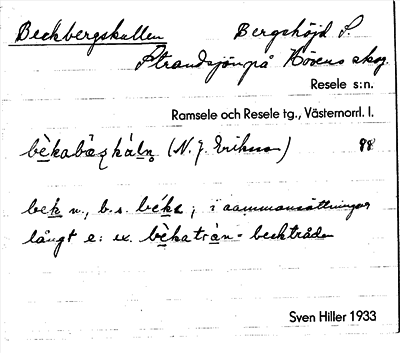 Beckbergskullen Bergshöjd S.
Strandsjön på Hösens skog.
Resele s:n.
Ramsele och Resele tg., Västernorrl. l.
(N. J. Eriksson) 98
beck n., b.s. ; i sammansättningar
långt e: ex. becktråden
Sven Hiller 1933